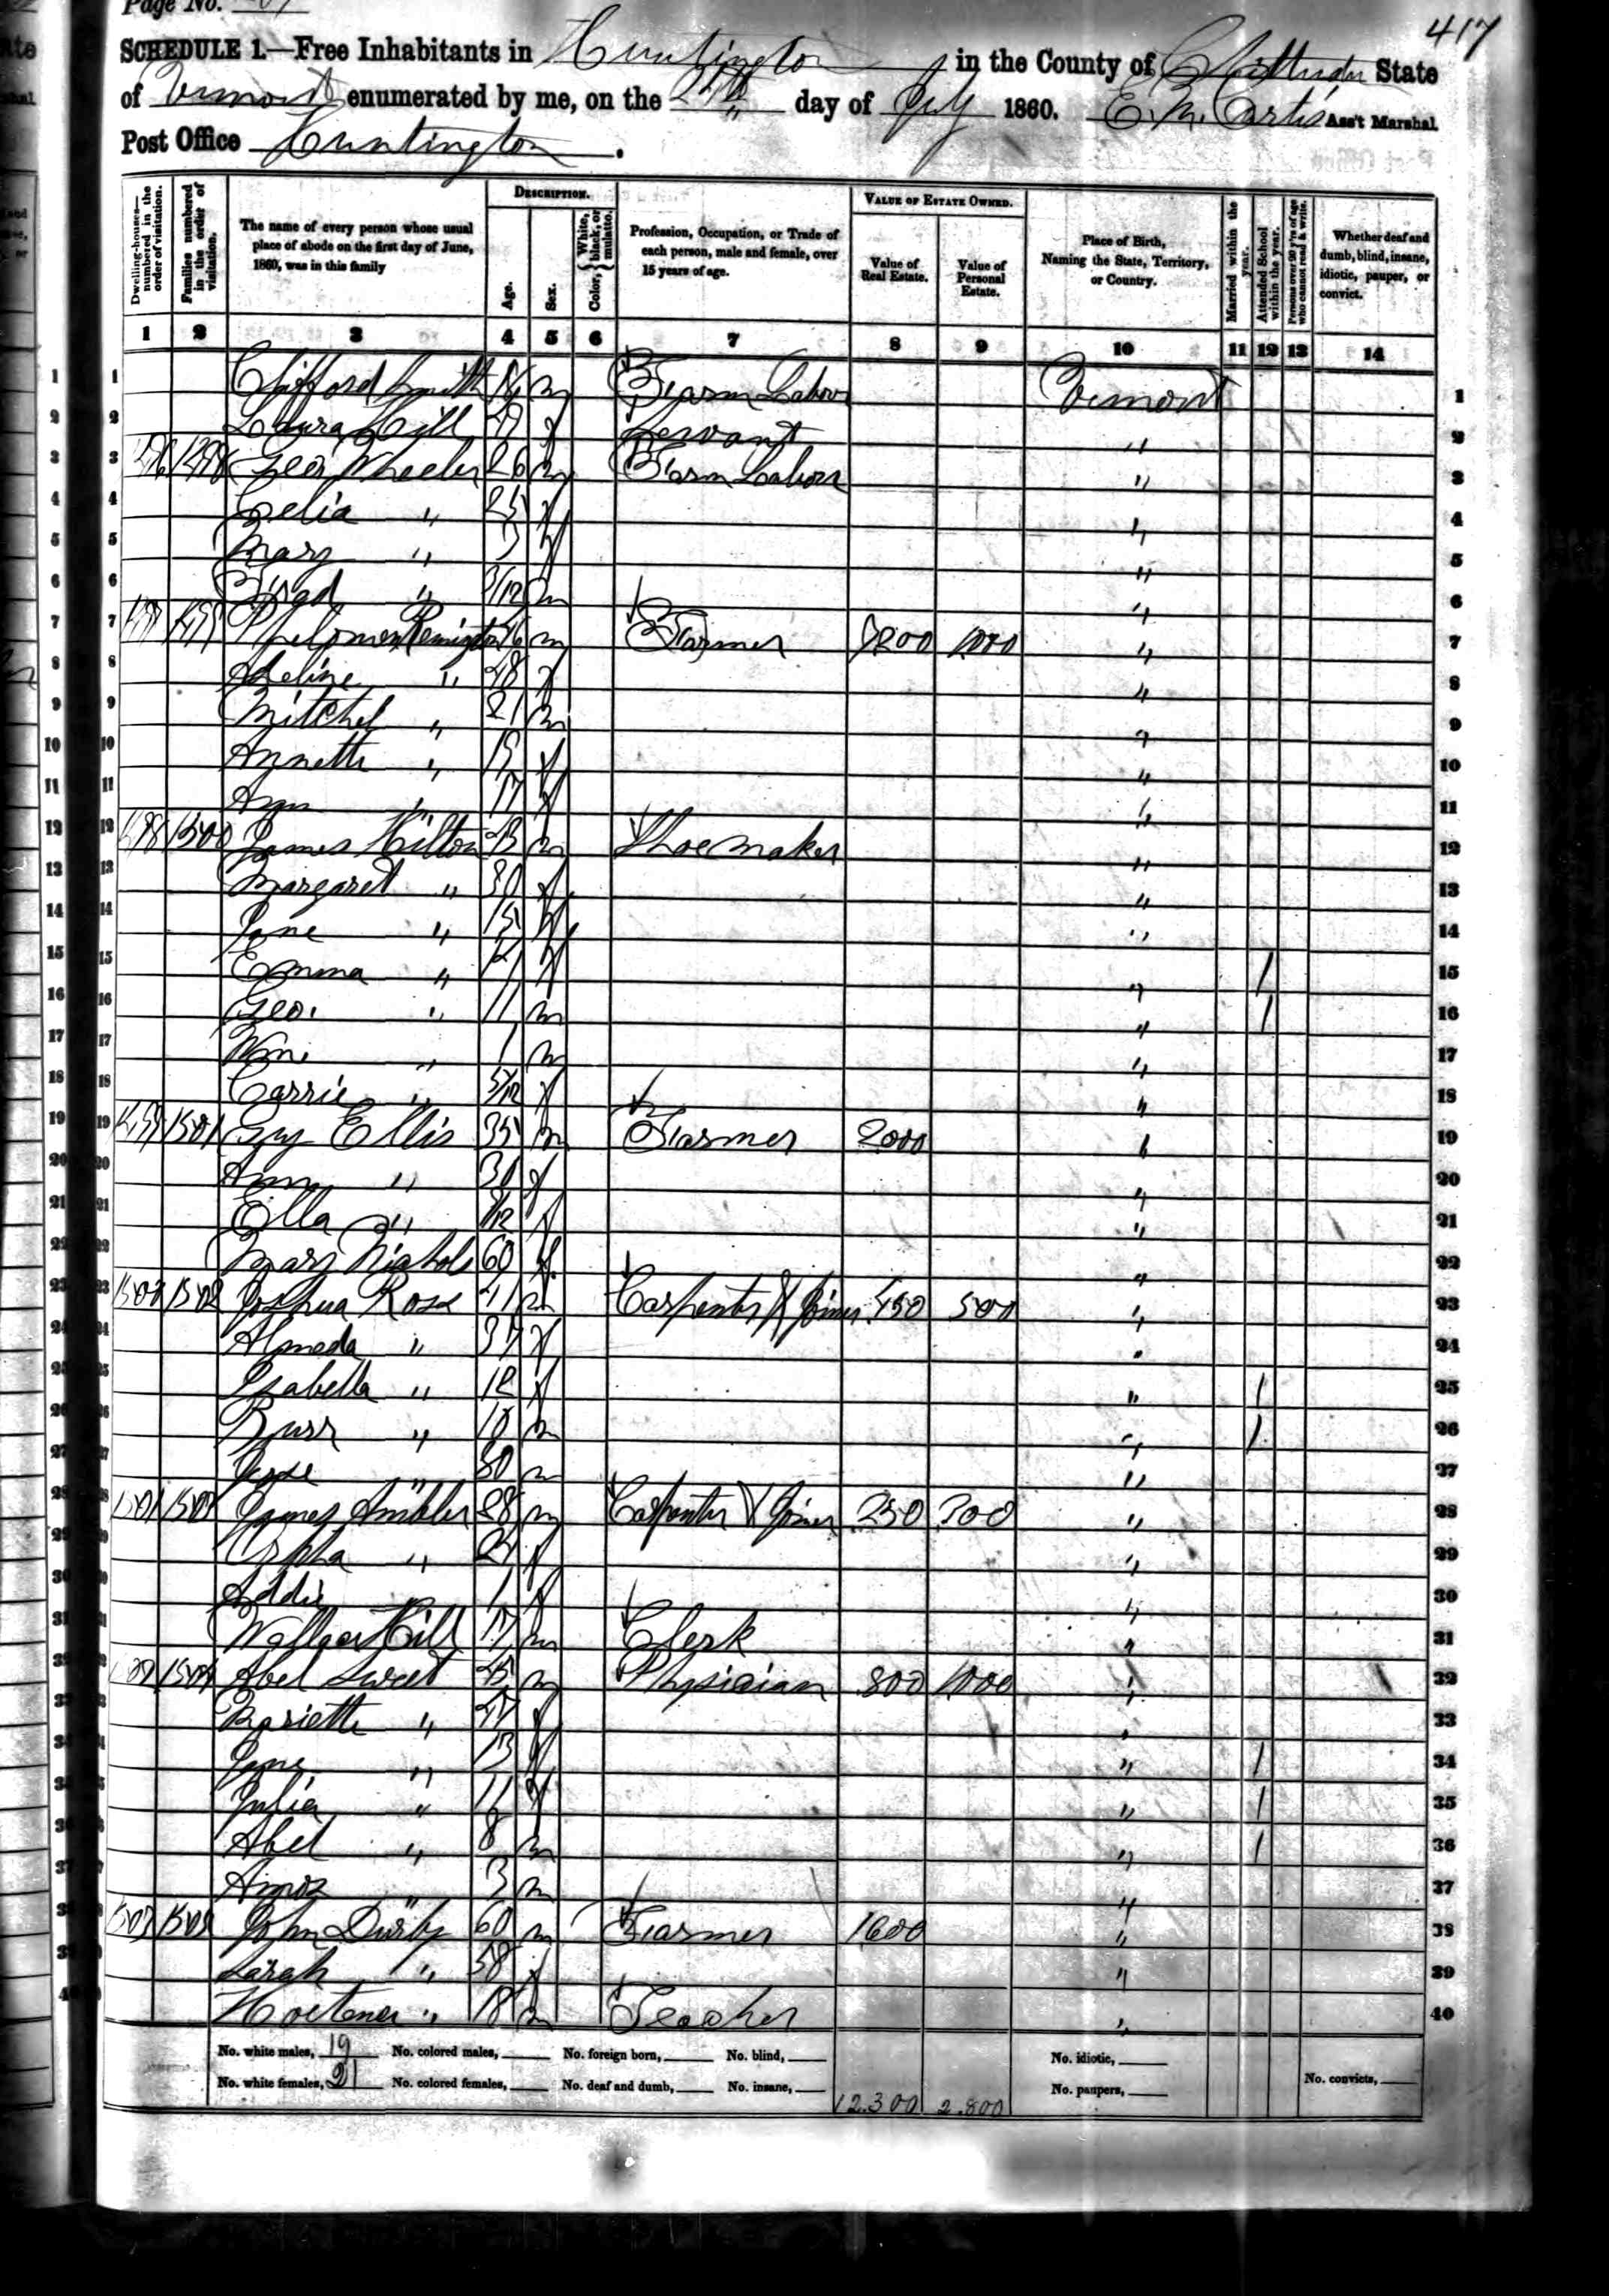 Page No.
417
SCHEDULE 1.—Free Inhabitants in Huntington in the County of Chittenden State
of Vermont enumerated by me, on the day of July 1860. E. M. Curtis Ass't Marshal
Post Office Huntington.
Dwelling-houses—numbered in the order of visitation. Families numbered in the order of visitation. The name of every person whose usual place of abode on the first day of June, 1860, was in this family DESCRIPTION. Age. Sex. Color, { White, black, or mulatto. Profession, Occupation, or Trade of each person, male and female, over 15 years of age. VALUE OF ESTATE OWNED. Value of Real Estate. Value of Personal Estate. Place of Birth, Naming the State, Territory, or Country. Married within the year. Attended School within the year. Persons over 20 y'rs of age who cannot read & write. Whether deaf and dumb, blind, insane, idiotic, pauper, or convict.
1 2 3 4 5 6 7 8 9 10 11 12 13 14
1 1 Clifford Smith 16 m Farm Labor Vermont 1
2 2 Laura Hill f Servant " 2
3 3 Geo. Wheeler 26 m Farm Labor " 3
4 4 Celia " 25 f " 4
5 5 Mary " 3 f " 5
6 6 " m " 6
7 7 1499 Philomon Remington 46 m Farmer 1000 " 7
8 8 Adeline " 48 f " 8
9 9 Mitchel " 21 m " 9
10 10 Annette " 19 f " 10
11 11 Ann " 17 f " 11
12 12 1498 1500 James Hilton m Shoemaker " 12
13 13 Margaret " 30 f " 13
14 14 Jane " 15 f " 14
15 15 Emma " f " / 15
16 16 Geo. " 11 m " / 16
17 17 Wm. " 1 m " 17
18 18 Carrie " 5/12 f " 18
19 19 1499 1501 Guy Ellis 35 m Farmer 2000 " 19
20 20 Ann " 30 f " 20
21 21 Ella " f " 21
22 22 Mary Nichols 60 f " 22
23 23 1502 Joshua Ross 41 m Carpenter & Joiner 450 500 " 23
24 24 Almeda " 37 f " 24
25 25 Isabella " 12 f " / 25
26 26 Burr " 10 m " / 26
27 27 Jesse " m " 27
28 28 1501 1503 James Ambler 28 m Carpenter & Joiner 250 300 " 28
29 29 Orpha " f " 29
30 30 Addie 1 f " 30
31 31 Wallace Hill 17 m Clerk " 31
32 1504 Abel Sweet 45 m Physician 800 1000 " 32
33 Mariette " f " 33
34 Jane " 13 f " / 34
35 Julia " 11 f " / 35
36 Abel " 8 m " / 36
37 Amos " 3 m " 37
38 1503 1505 John Durby 60 m Farmer 1600 " 38
39 Sarah " 58 f " 39
40 " 18 m Teacher " 40
No. white males, 19 No. colored males, No. foreign born, No. blind, No. idiotic,
No. white females, 21 No. colored females, No. deaf and dumb, No. insane, 12.300 2.800 No. paupers, No. convicts,